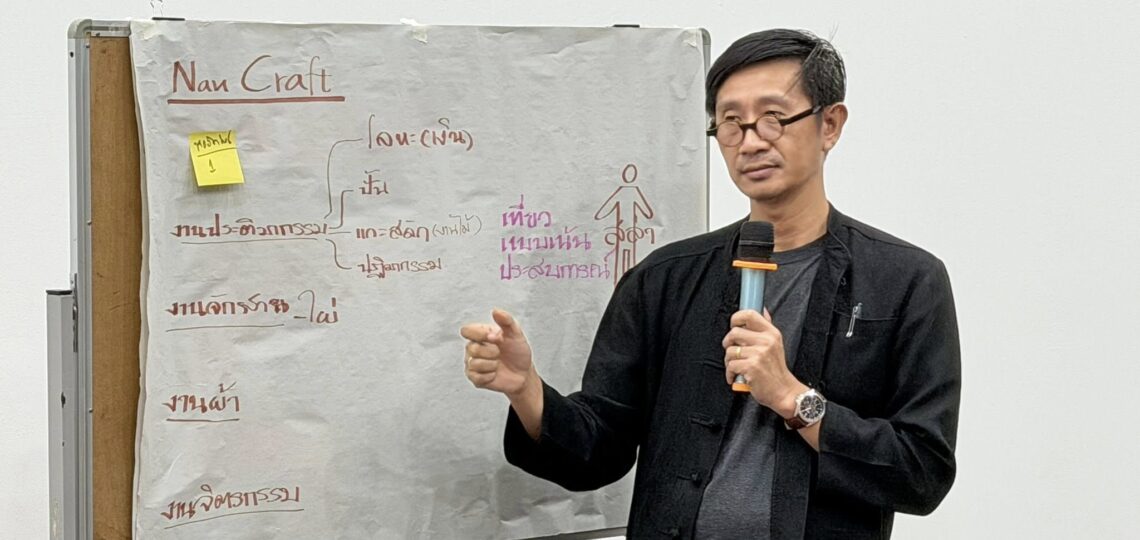 Nan Craft
1
โลหะ(เงิน)
ปั้น
งานประติมากรรม
แกะสลัก(งานไม้)
ปฏิมากรรม
เที่ยว
แบบเน้น
ประสบการณ์
สล่า
งานจักสาน - ไผ่
งานผ้า
งานจิตรกรรม